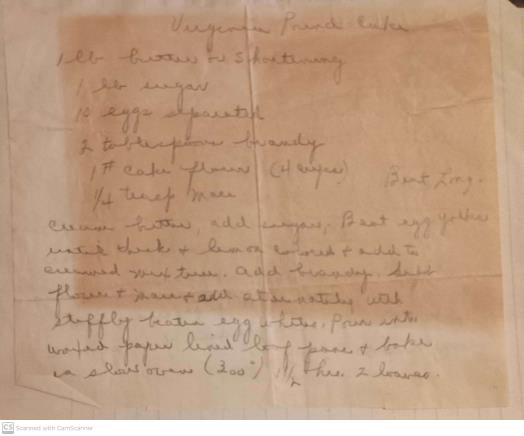 Virginia Pound Cake
1 lb butter or Shortening
1 lb sugar
10 eggs separated
2 tablespoons brandy
1# cake flour (4 cups)
Beat Long.
1/4 teasp mace
Cream butter, add sugar, Beat egg yolks
until thick & lemon colored & add to
creamed mixture. Add brandy. Sift
flour & mace & add alternately with
stiffly beaten egg whites. Pour into
waxed paper lined loaf pans & bake
in slow oven (300°) 1 1/2 hrs. 2 loaves.
CS Scanned with CamScanner